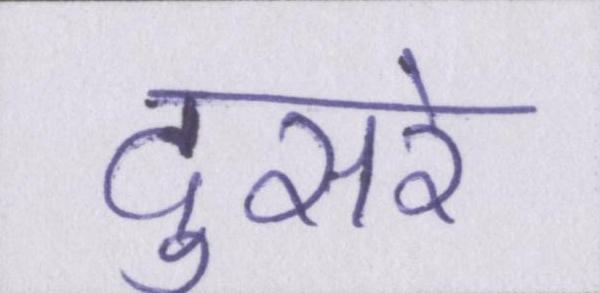 दुसरे